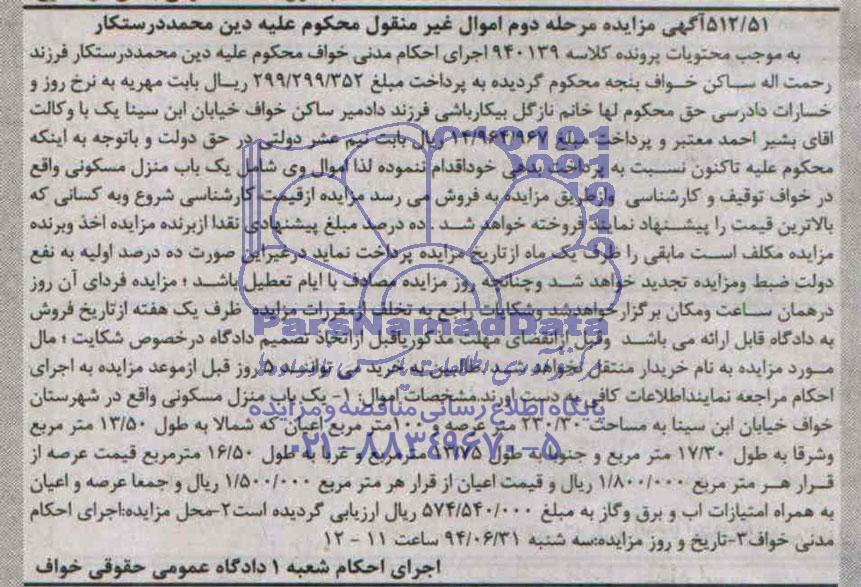 ۵۱۲/۵۱آگهی مزایده مرحله دوم اموال غیر منقول محکوم علیه دین محمددرستکار
به موجب محتویات پرونده کلاسه ۹۴۰۱۳۹ اجرای احکام مدنی خواف محکوم علیه دین محمددرستکار فرزند
رحمت اله ساکن خواف بنجه محکوم گردیده به پرداخت مبلغ ۲۹۹/۲۹۹/۳۵۲ ریال بابت مهریه به نرخ روز و
خسارات دادرسی حق محکوم لها خانم نازگل بیکارباشی فرزند دادمیر ساکن خواف خیابان ابن سینا یک با وکالت
اقای بشیر احمد معتبر و پرداخت مبلغ ۱۴/۹۶۴/۹۶۷ ریال بابت نیم عشر دولتی در حق دولت و باتوجه به اینکه
محکوم علیه تاکنون نسبت به پرداخت بدهی خوداقدام ننموده لذا اموال وی شامل یک باب منزل مسکونی واقع
در خواف توقیف و کارشناسی وازطریق مزایده به فروش می رسد مزایده ازقیمت کارشناسی شروع وبه کسانی که
بالاترین قیمت را پیشنهاد نمایند فروخته خواهد شد . ده درصد مبلغ پیشنهادی نقدا ازبرنده مزایده اخذ وبرنده
مزایده مکلف است مابقی را ظرف یک ماه ازتاریخ مزایده پرداخت نماید درغیراین صورت ده درصد اولیه به نفع
دولت ضبط ومزایده تجدید خواهد شد وچنانچه روز مزایده مصادف با ایام تعطیل باشد ؛ مزایده فردای آن روز
درهمان ساعت ومکان برگزارخواهدشد وشکایات راجع به تخلف ازمقررات مزایده ظرف یک هفته ازتاریخ فروش
به دادگاه قابل ارائه می باشد وقبل ازانقضای مهلت مذکوریاقبل ازاتخاذ تصمیم دادگاه درخصوص شکایت ؛ مال
مورد مزایده به نام خریدار منتقل نخواهد شد.طالبین به خرید می توانند ۵روز قبل ازموعد مزایده به اجرای
احکام مراجعه نمایندتااطلاعات کافی به دست آورند.مشخصات اموال: ۱- یک باب منزل مسکونی واقع در شهرستان
خواف خیابان ابن سینا به مساحت ۲۳۰/۳۰ متر عرصه و ۱۰۰متر مربع اعیان که شمالا به طول ۱۳/۵۰ متر مربع
وشرقا به طول ۱۷/۳۰ متر مربع و جنوبا به طول ۱۳/۷۵ مترمربع و غربا به طول ۱۶/۵۰ مترمربع قیمت عرصه از
قرار هر متر مربع ۱/۸۰۰/۰۰۰ ریال و قیمت اعیان از قرار هر متر مربع ۱/۵۰۰/۰۰۰ ریال و جمعا عرصه و اعیان
به همراه امتیازات اب و برق وگاز به مبلغ ۵۷۴/۵۴۰/۰۰۰ ریال ارزیابی گردیده است۲-محل مزایده:اجرای احکام
مدنی خواف۳-تاریخ و روز مزایده:سه شنبه ۹۴/۰۶/۳۱ ساعت ۱۱ - ۱۲
اجرای احکام شعبه ۱ دادگاه عمومی حقوقی خواف
ParsNamadData
پایگاه اطلاع رسانی مناقصه و مزایده
۰۲۱-۸۸۳۴۹۶۷۰-۵